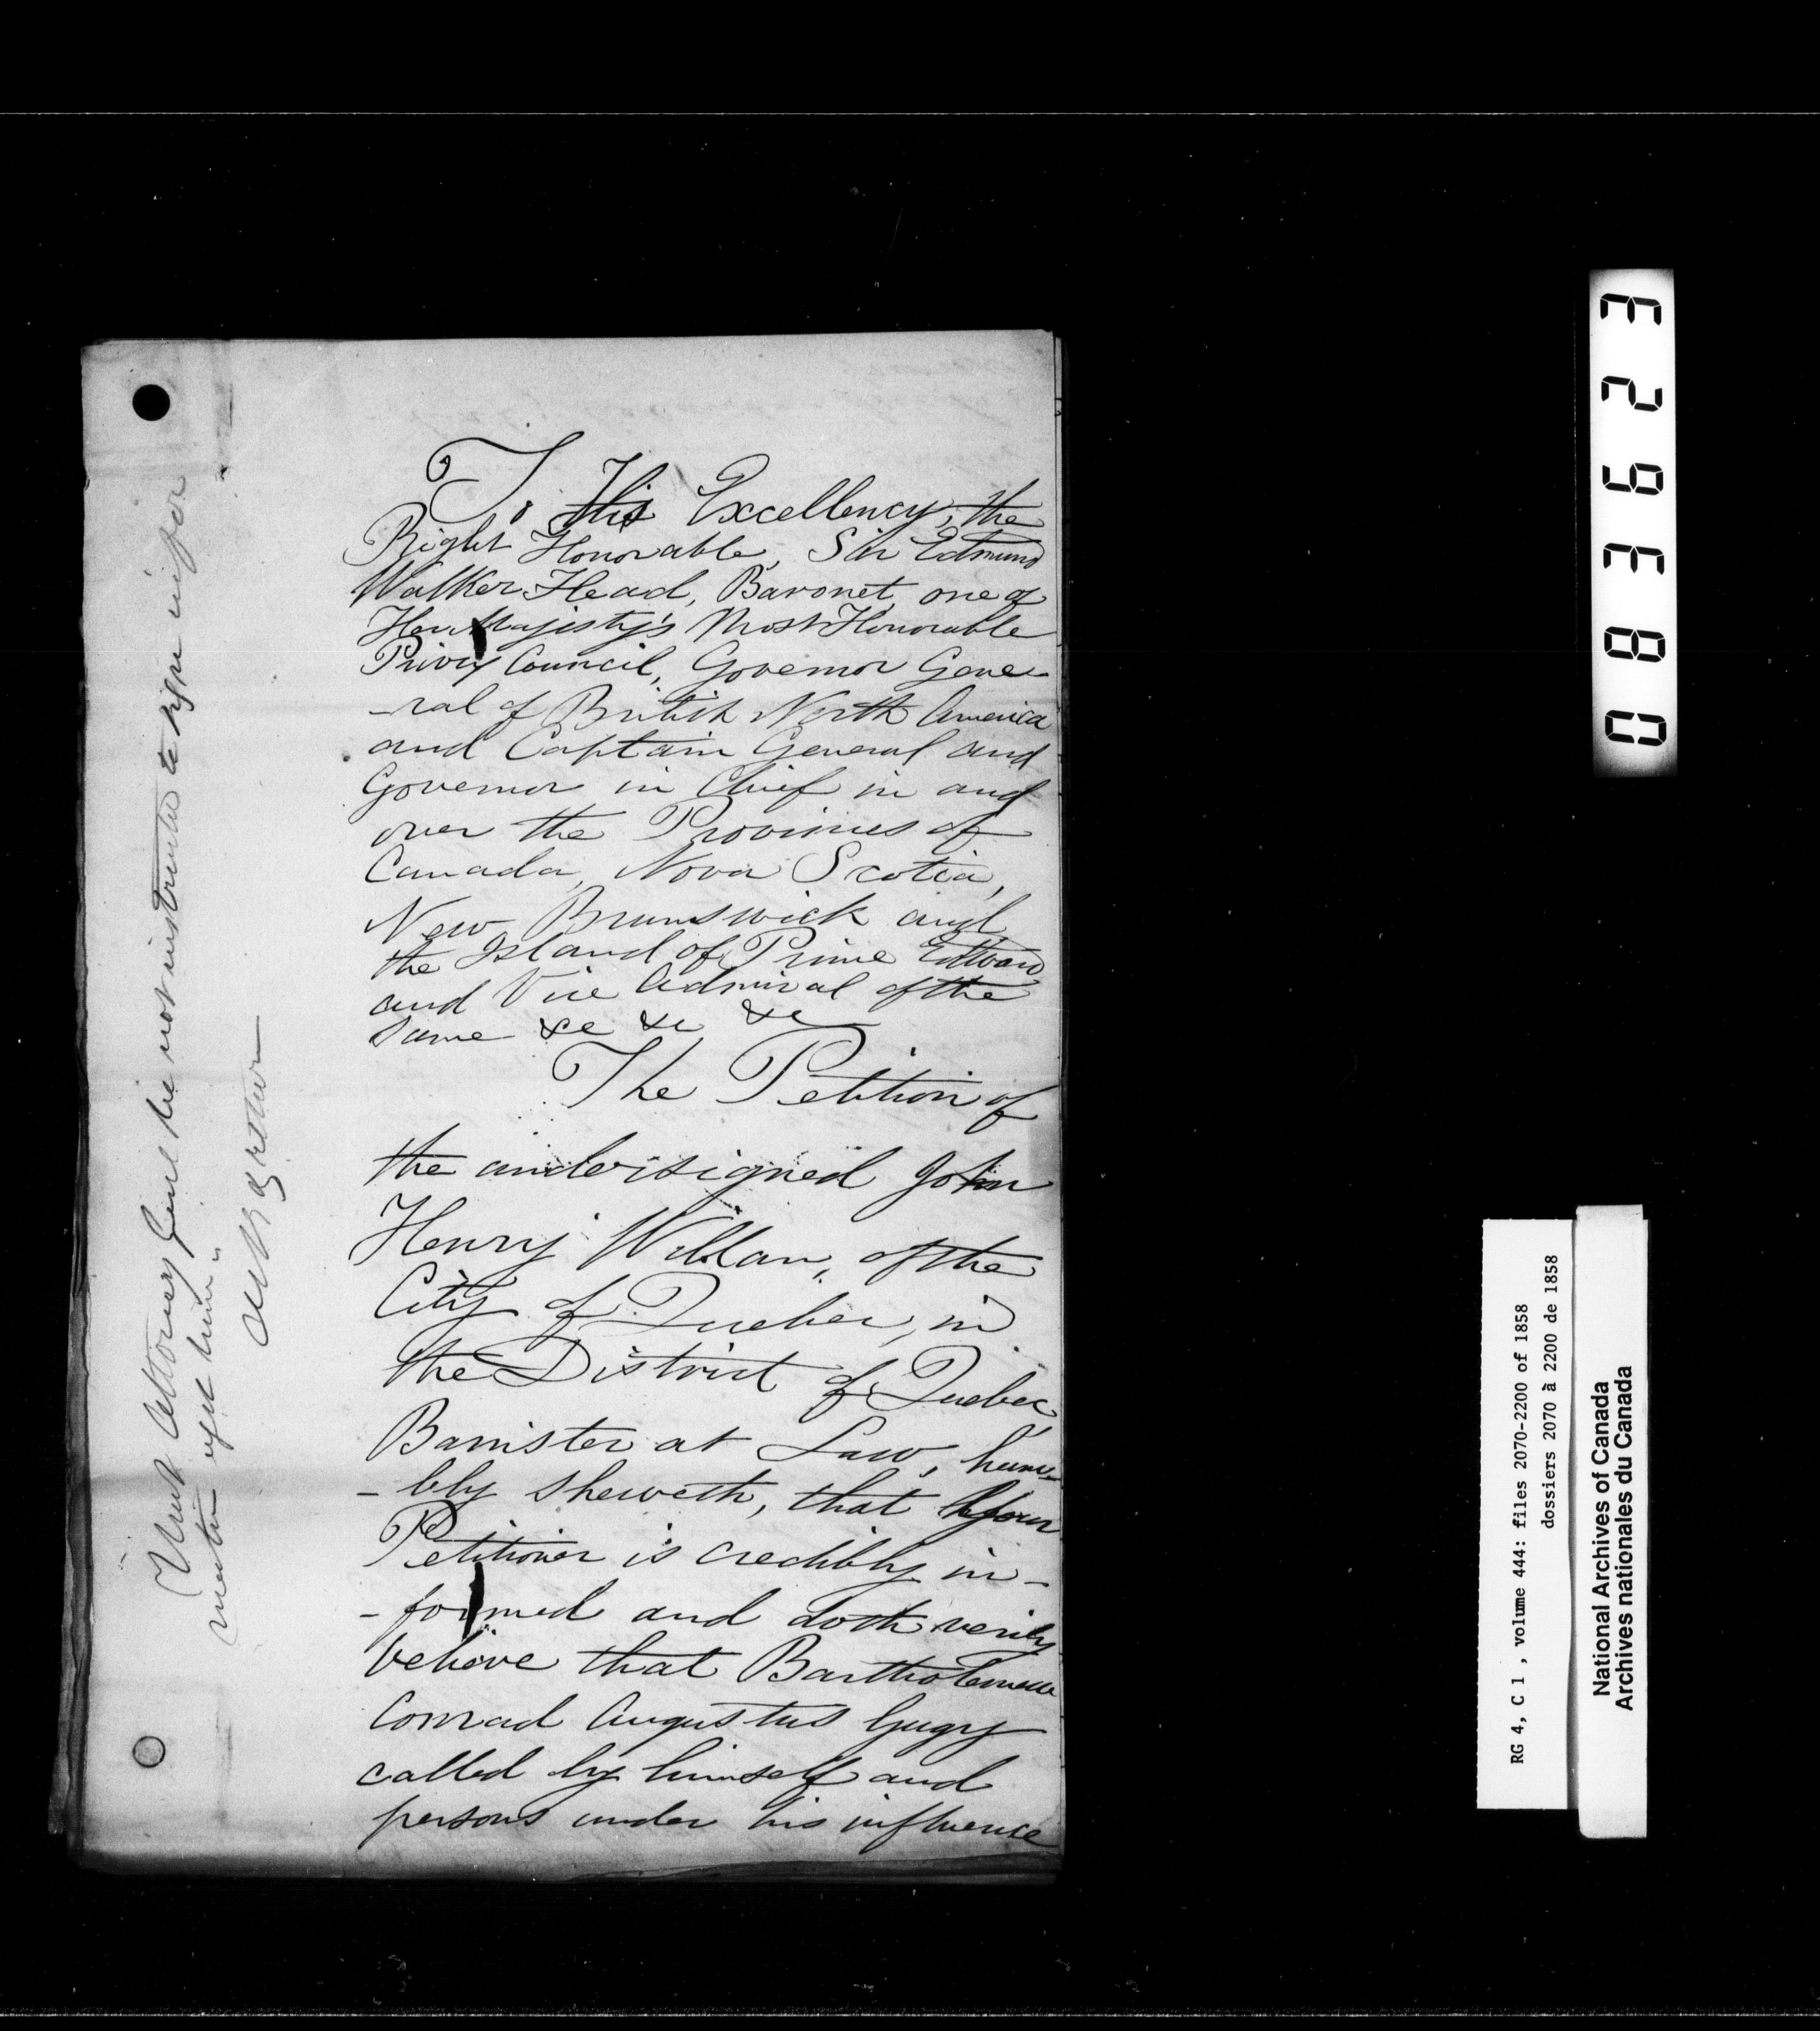 To His Excellency, the
Right Honorable, Sir Edmund
Walker Head, Baronet one of
Her Majisty's Most Honorable
Privy Council, Governor Gene-
-ral of British North America
and Captain General and
Governor in Chief in and
over the Provinces of
Canada, Nova Scotia,
New Brunswick and
the Island of Prince Edward
and Vice Admiral of the
same &c &c &c
The Petition of
the undersigned John
Henry Willan, of the
City of Quebec, in
the District of Quebec,
Barrister at Law, hum-
-bly sheweth, that your
Petitioner is credibly in-
-formed and doth verily
believe that Bartholomew
Conrad Augustus Gugy
called by himself and
persons under his influence
Attorney Genl be not instructed to sign infor
mation agst him"
3 2 9 3 8 0
RG 4, C 1 , volume 444: files 2070-2200 of 1858
dossiers 2070 à 2200 de 1858
National Archives of Canada
Archives nationales du Canada